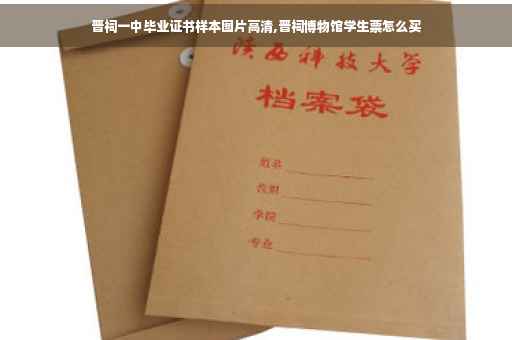 晋祠一中毕业证书样本图片高清,晋祠博物馆学生票怎么买
陕西科技大学
档案袋
姓名
学院
专业